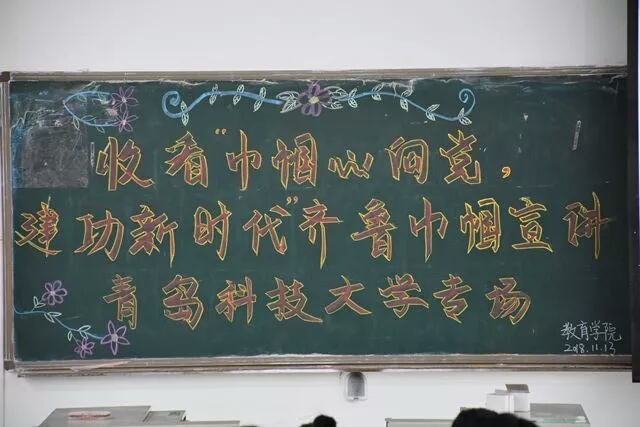 收看"巾帼心向党，
建功新时代"齐鲁巾帼宣讲
青岛科技大学专场
教育学院
2018.11.13